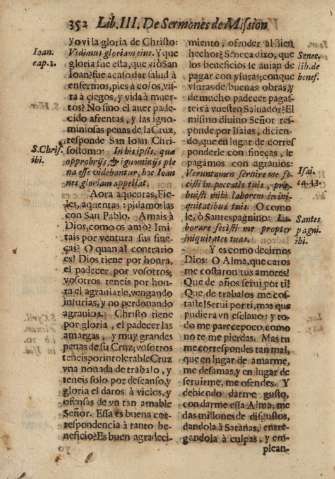 352 Lib. III. De Sermones de Mission
Yo vi la gloria de Christo:
Vidimus gloriam eius. Y que
gloria fue esta, que viò San
Ioan? fue acaso dar salud à
enfermos, pies à cojos, vis-
ta à ciegos, y vida à muer-
tos? No sino el auer pade-
cido afrentas, y las igno-
miniosas penas de la Cruz,
responde San Ioan Chri-
sostomo: In his ipsis, quæ
opprobrijs, & ignominijs ple
na esse videbantur, hæc Ioan
nes gloriam appellat.
Aora aqui cotas, Fie-
les, aquentas pidamoslas
con San Pablo. Amais à
Dios, como os amò? Imi-
tais por ventura sus fine-
ças? O quan al contrario
es! Dios tiene por honra,
el padecer por vosotros,
vosotros teneis por hon-
ra el agraviarle, vengando
injurias, y no perdonando
agravios. Christo tiene
por gloria, el padecer las
amargas, y muy grandes
penas de su Cruz, vosotros
teneis por intolerable Cruz
vna nonada de trabajo, y
teneis solo por descanso, y
gloria el daros à vicios, y
ofensas de vn tan amable
Señor. Essa es buena cor-
respondencia à tanto be-
neficio? Es buen agradeci-
Ioan.
cap. 1.
S. Chris.
ibi.
miento, ofender al bien
hechor? Seneca dixo, que
los beneficios se auian de
pagar con vsuras; con que
vsuras de buenas obras, y
de mucho padecer pagas-
teis à vuestro Salvador? El
mismo diuino Señor res-
ponde por Isaias, dicien-
do, que en lugar de corres-
ponderle con fineças, le
pagamos con agravios:
Veruntamen seruire me fe-
cisti in peccatis tuis, præ-
buisti mihi laborem in ini-
quitatibus tuis. O como
le, ò Santes pagnino: La-
borare fecisti me propter
iniquitates tuas.
Y es como decirnos
Dios: O Alma, que caros
me costaron tus amores!
Que de años serui por ti!
Que de trabajos me cos-
taste! serui por ti, mas que
pudiera vn esclavo: y to-
do me parece poco, como
no te me pierdas. Mas tu
me correspondes tan mal,
que en lugar de amarme,
me desamas, y en lugar de
seruirme, me ofendes. Y
debiendo darme gusto,
con darme essa Alma, me
das millones de disgustos,
dandola à Satanàs, entre-
gandola à culpas, y em-
plean-
Senec.
lib. de
benef.
Isai.
Santes
pagni.
ibi.